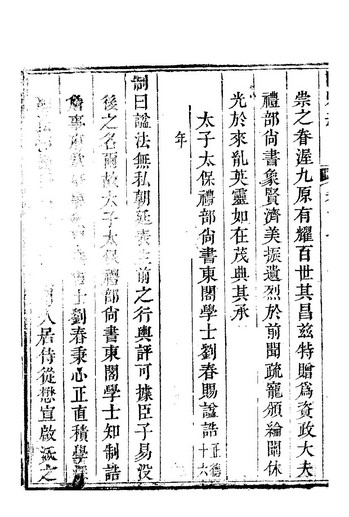 崇之眷渥九原有耀百世其昌兹特贈爲資政大夫
禮部尚書象賢濟美振遺烈於前聞疏寵頒綸闡休
光於來禩英靈如在茂典其承
太子太保禮部尚書東閣學士劉春賜諡誥正德十六
年
制曰諡法無私朝廷表生前之行輿評可據臣子易没
後之名爾故太子太保禮部尚書東閣學士知制誥
劉春秉心正直積學
入居侍從懋宣啟沃之